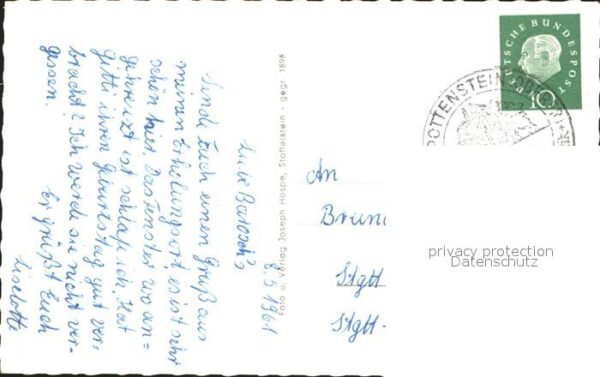 8.9.1961
Liebe Barosch's
Sende Euch einen Gruß aus
meinem Erholungsort, es ist sehr
schön hier. Das Fenster wo an=
gekreuzt ist schlafe ich. Hat
Gitti ihren Geburtstag gut ver=
bracht? Ich werde sie nicht ver=
gessen.
Es grüßt Euch
Liselotte
Foto u. Verlag Joseph Hospe, Staffelstein - gegr. 1898
DEUTSCHE BUNDESPOST
10
POTTENSTEIN
An
Brun
Stgtt
Stgtt-
privacy protection
Datenschutz